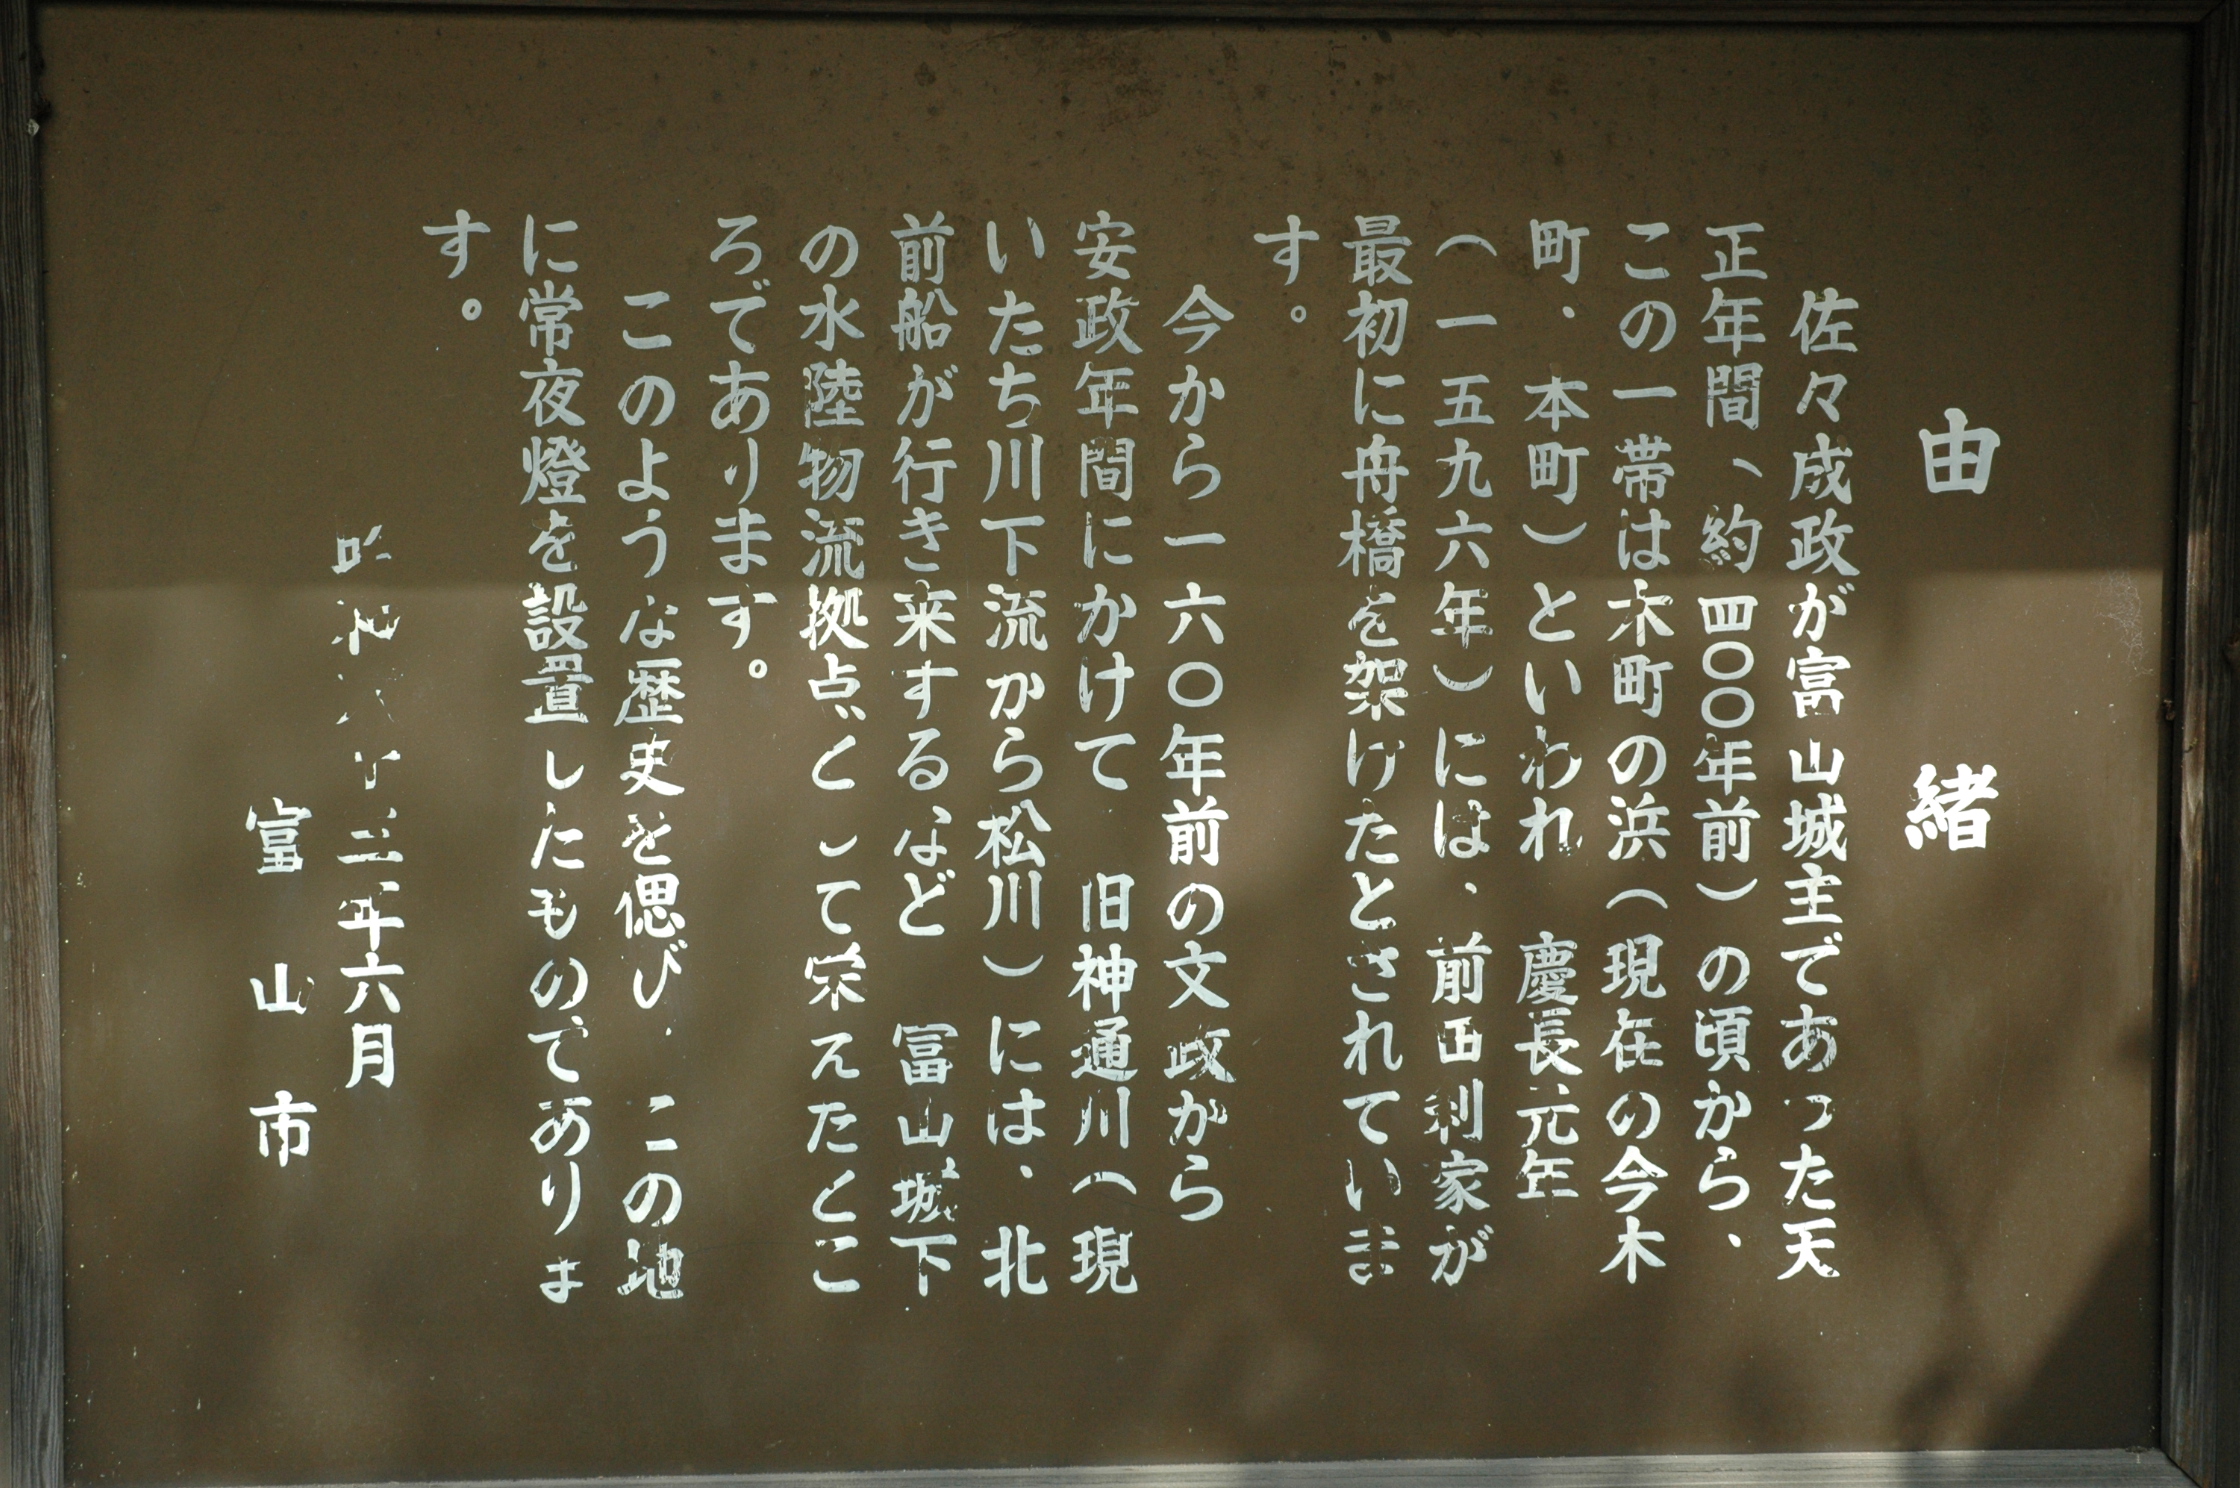 由緒
佐々成政が富山城主であった天
正年間、約四〇〇年前）の頃から、
この一帯は木町の浜（現在の今木
町、本町）といわれ 慶長元年
（一五九六年）には、前田利家が
最初に舟橋を架けたとされていま
す。
今から一六〇年前の文政から
安政年間にかけて 旧神通川（現
いたち川下流から松川）には、北
前船が行き来するなど 富山城下
の水陸物流拠点として栄えたとこ
ろであります。
このような歴史を偲び、この地
に常夜燈を設置したものでありま
す。
昭和六十三年六月
富山市